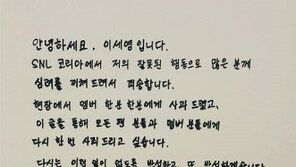 안녕하세요, 이세영입니다.
SNL 코리아에서 저의 잘못된 행동으로 많은 분께
심려를 끼쳐드려서 죄송합니다.
현장에서 멤버 한분 한분에게 사과 드렸고,
이 글을 통해 모든 팬 분들과 멤버분들에게
다시 한번 사죄드리고 싶습니다.
다시는 이런 일이 없도록 반성하고 또 반성하겠습니다